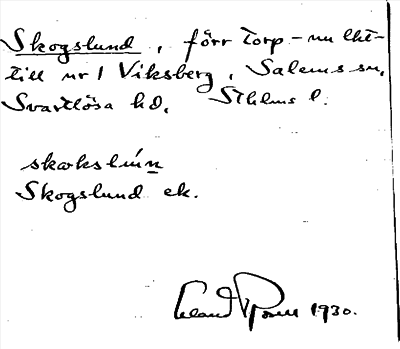 Skogslund, förr torp – nu lht–
till nr 1 Viksberg, Salems sn,
Svartlösa hd, Sthlms l.
skɷkslún̲
Skogslund ek.
1930.